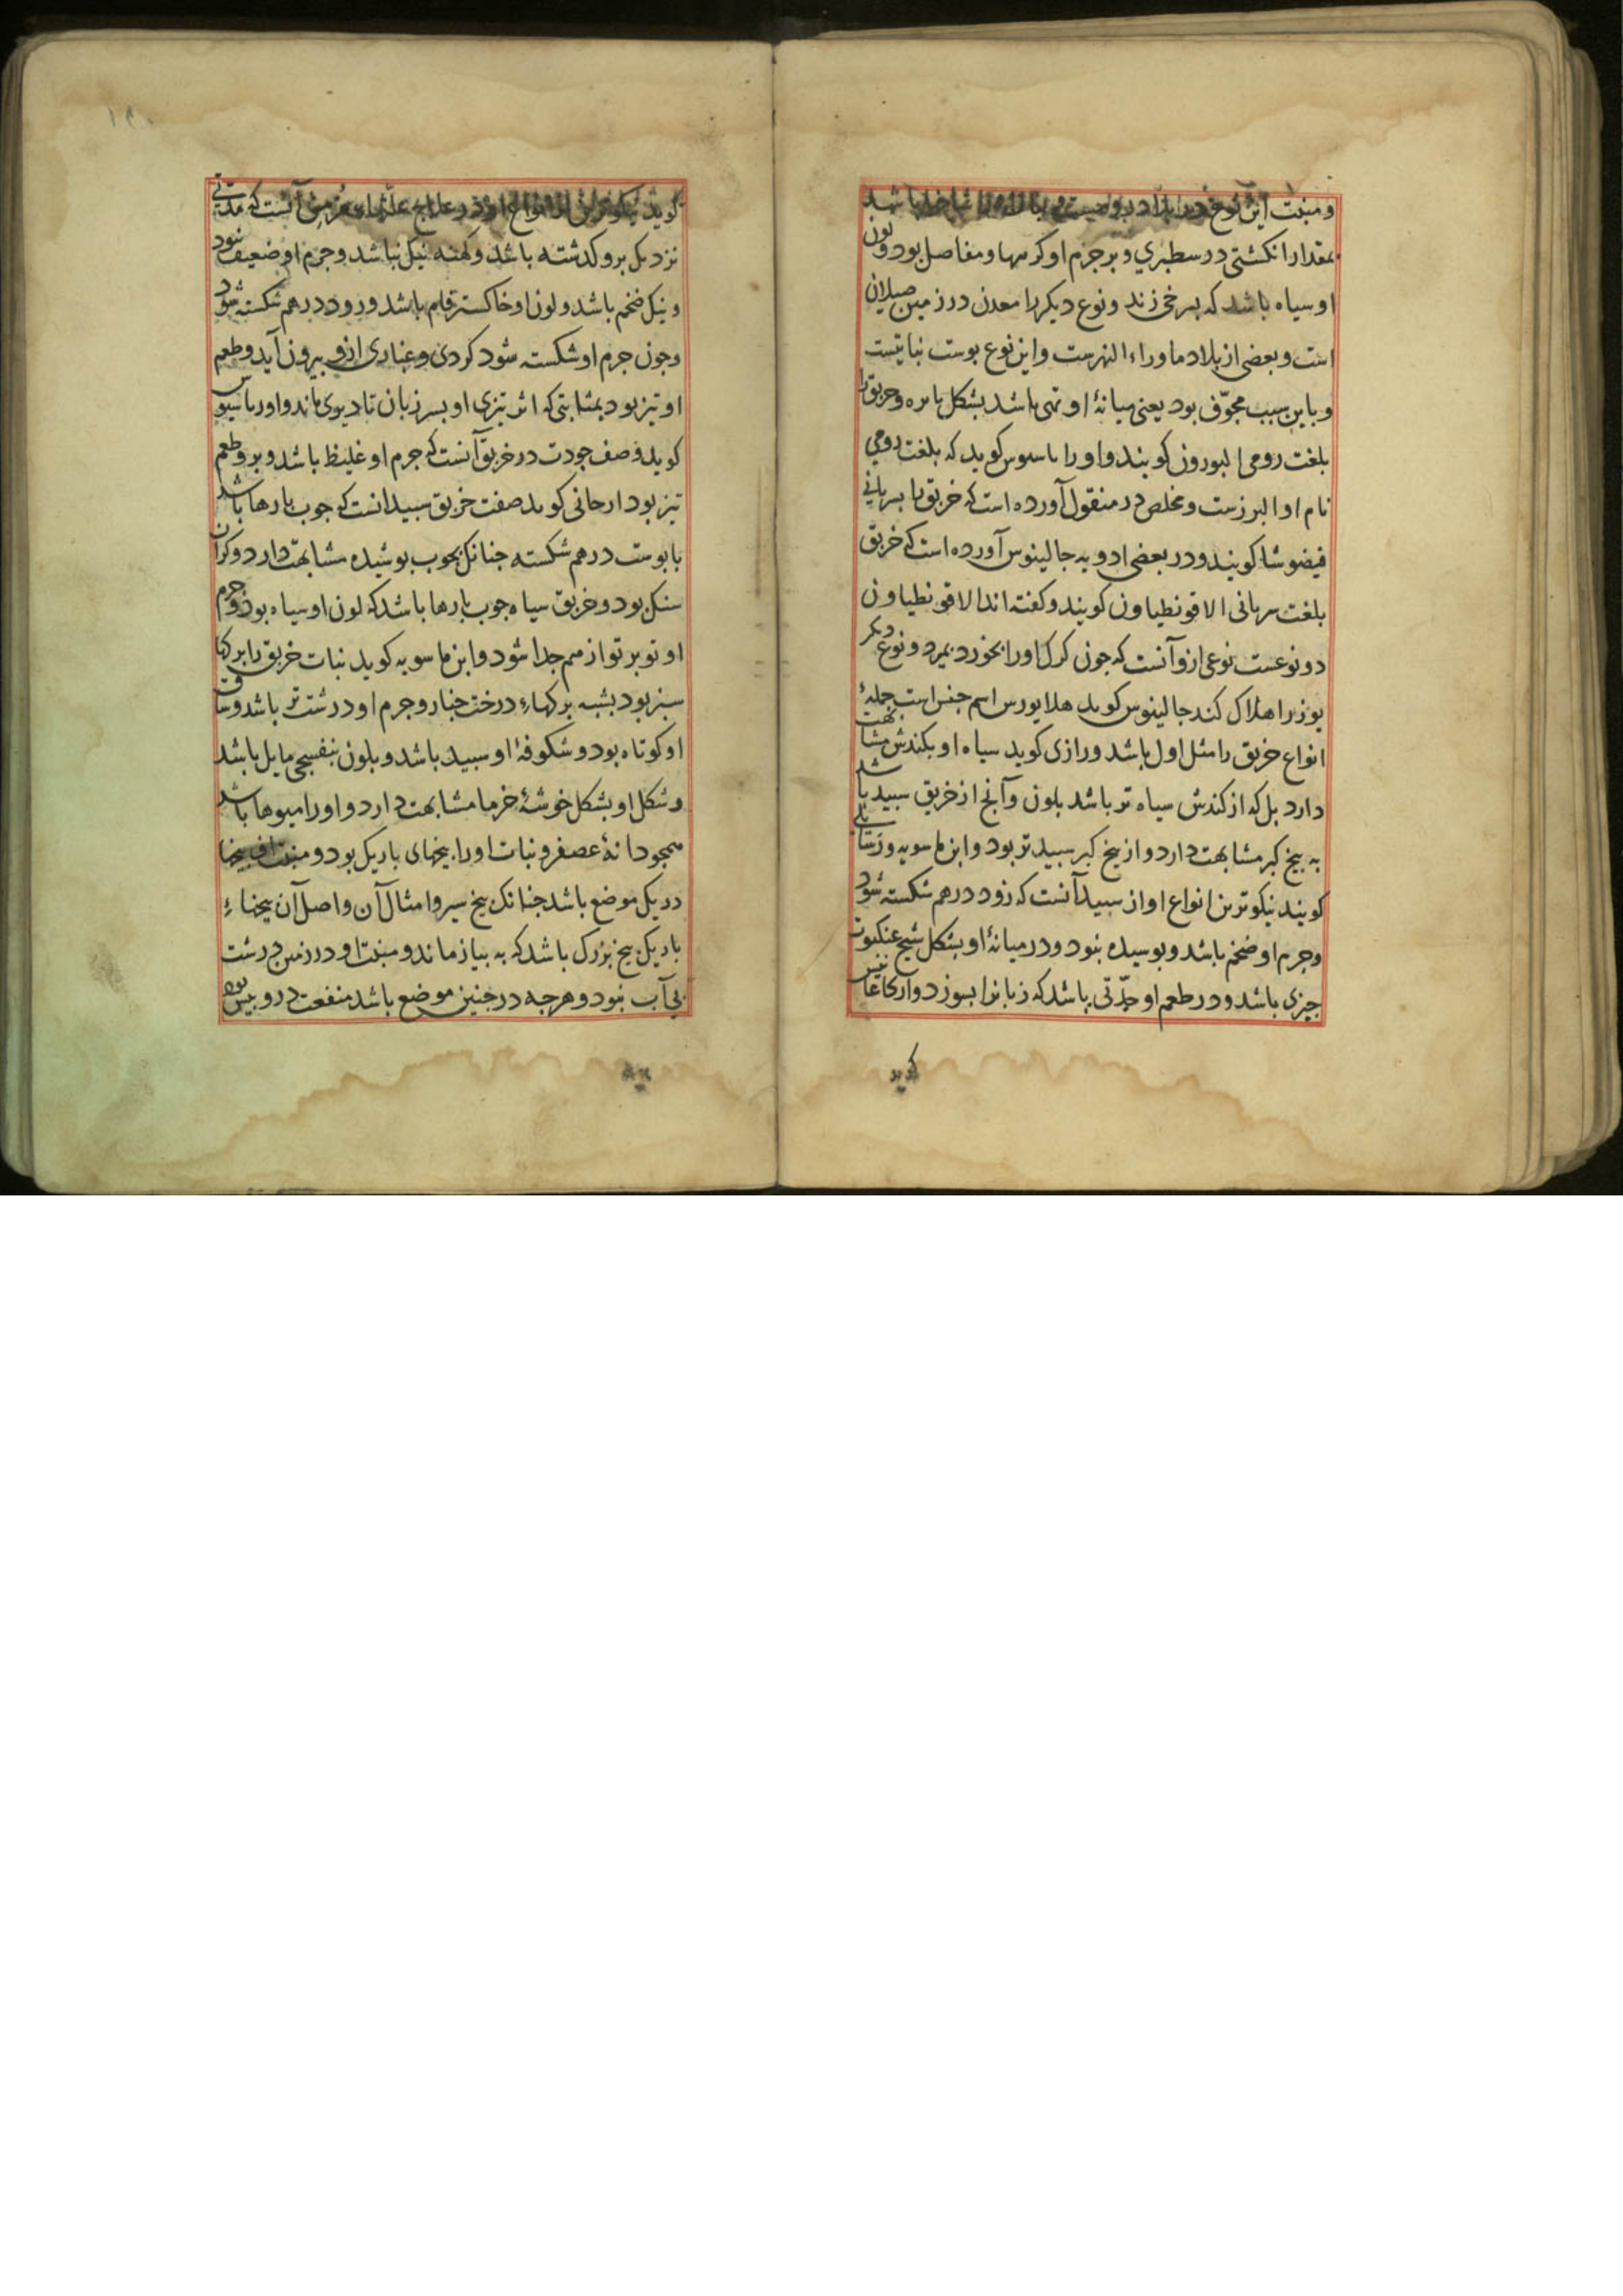 و منبت این نوع در بلاد روم است و
بمقدار انکشتی در سطبری و بر جرم او کرهها و مفاصل بود و لون
او سیاه باشد که بسرخی زند و نوع دیکر را معدن در زمین صیلان
است و بعضی از بلاد ماوراء النهرست و این نوع بوست نباتیست
و باین سبب مجوّف بود یعنی میانهٔ او تهی باشد بشکل ماسره و خربق را
بلغت رومی البورون کویند و او را باسوس کوید که بلغت رومی
نام او البرزست و مخلص در منقول آورده است که خربق را بسریانی
فیضوشا کویند و در بعضی ادویه جالینوس آورده است که خربق
بلغت سریانی الاقونطیاون کویند و کفته اند الاقونطیاون
دو نوعست نوعی ازو آنست که جون کرک او را بخورد بمیرد و نوع دیکر
یوز را هلاک کند جالینوس کوید هلابورس اسم جنس است جملهٔ
انواع خربق را مثل اول باشد و رازی کوید سیاه او بکندش مشابهت
دارد بل که از کندش سیاه تر باشد بلون و آنج از خربق سبید باشد
به بیخ کبر مشابهت دارد و از بیخ کبر سبیدتر بود و ابن ماسویه و زستانی
کویند نیکوترین انواع او از سبید آنست که زود درهم شکسته شود
و جرم او ضخم باشد و بوسیده نبود و در میانهٔ او بشکل نسج عنکبوت
جیزی باشد و در طعم او حدّتی باشد که زبانرا بسوزد و ارکاغانیس
کوید
کوید نیکوترین انواع او در علاج علتهاء مزمن آنست که مدتی
نزدیک برو کذشته باشد و کهنه نیک نباشد و جرم او ضعیف نبود
و نیک ضخم باشد و لون او خاکستر فام باشد و زود درهم شکسته شود
و جون جرم او شکسته شود کردی و غباری ازو بیرون آید و طعم
او تیز بود بمثابتی که اثر تیزی او بسر زبان تا دیری ماند و اورباسیوس
کوید وصف جودت در خربق آنست که جرم او غلیظ باشد و بر و طعم
تیز بود ارجانی کوید صفت خربق سبید انست که جوب بارها باشد
با بوست درهم شکسته جنانک بجوب بوشیده مشابهت دارد و کران
سنک بود و خربق سیاه جوب بارها باشد که لون او سیاه بود و جرم
او توبرتو از هم جدا شود و ابن ماسویه کوید نبات خربق را برکها
سبز بود بشبه برکهاء درخت جنار و جرم او درشت تر باشد و ساق
او کوتاه بود و شکوفهٔ او سبید باشد و بلون بنفسجی مایل باشد
و شکل او بشکل خوشهٔ خرما مشابهت دارد و او را میوها باشد
همجو دانهٔ عصفر و نبات او را بیخهای باریک بود و منبت این بیخها
در یک موضع باشد جنانک بیخ سیر و امثال آن و اصل آن بیخهاء
باریک بیخ بزرک باشد که به بیاز ماند و منبت او در زمین درشت
بی آب بود و هرجه در جنین موضع باشد منفعت درو بیش بود